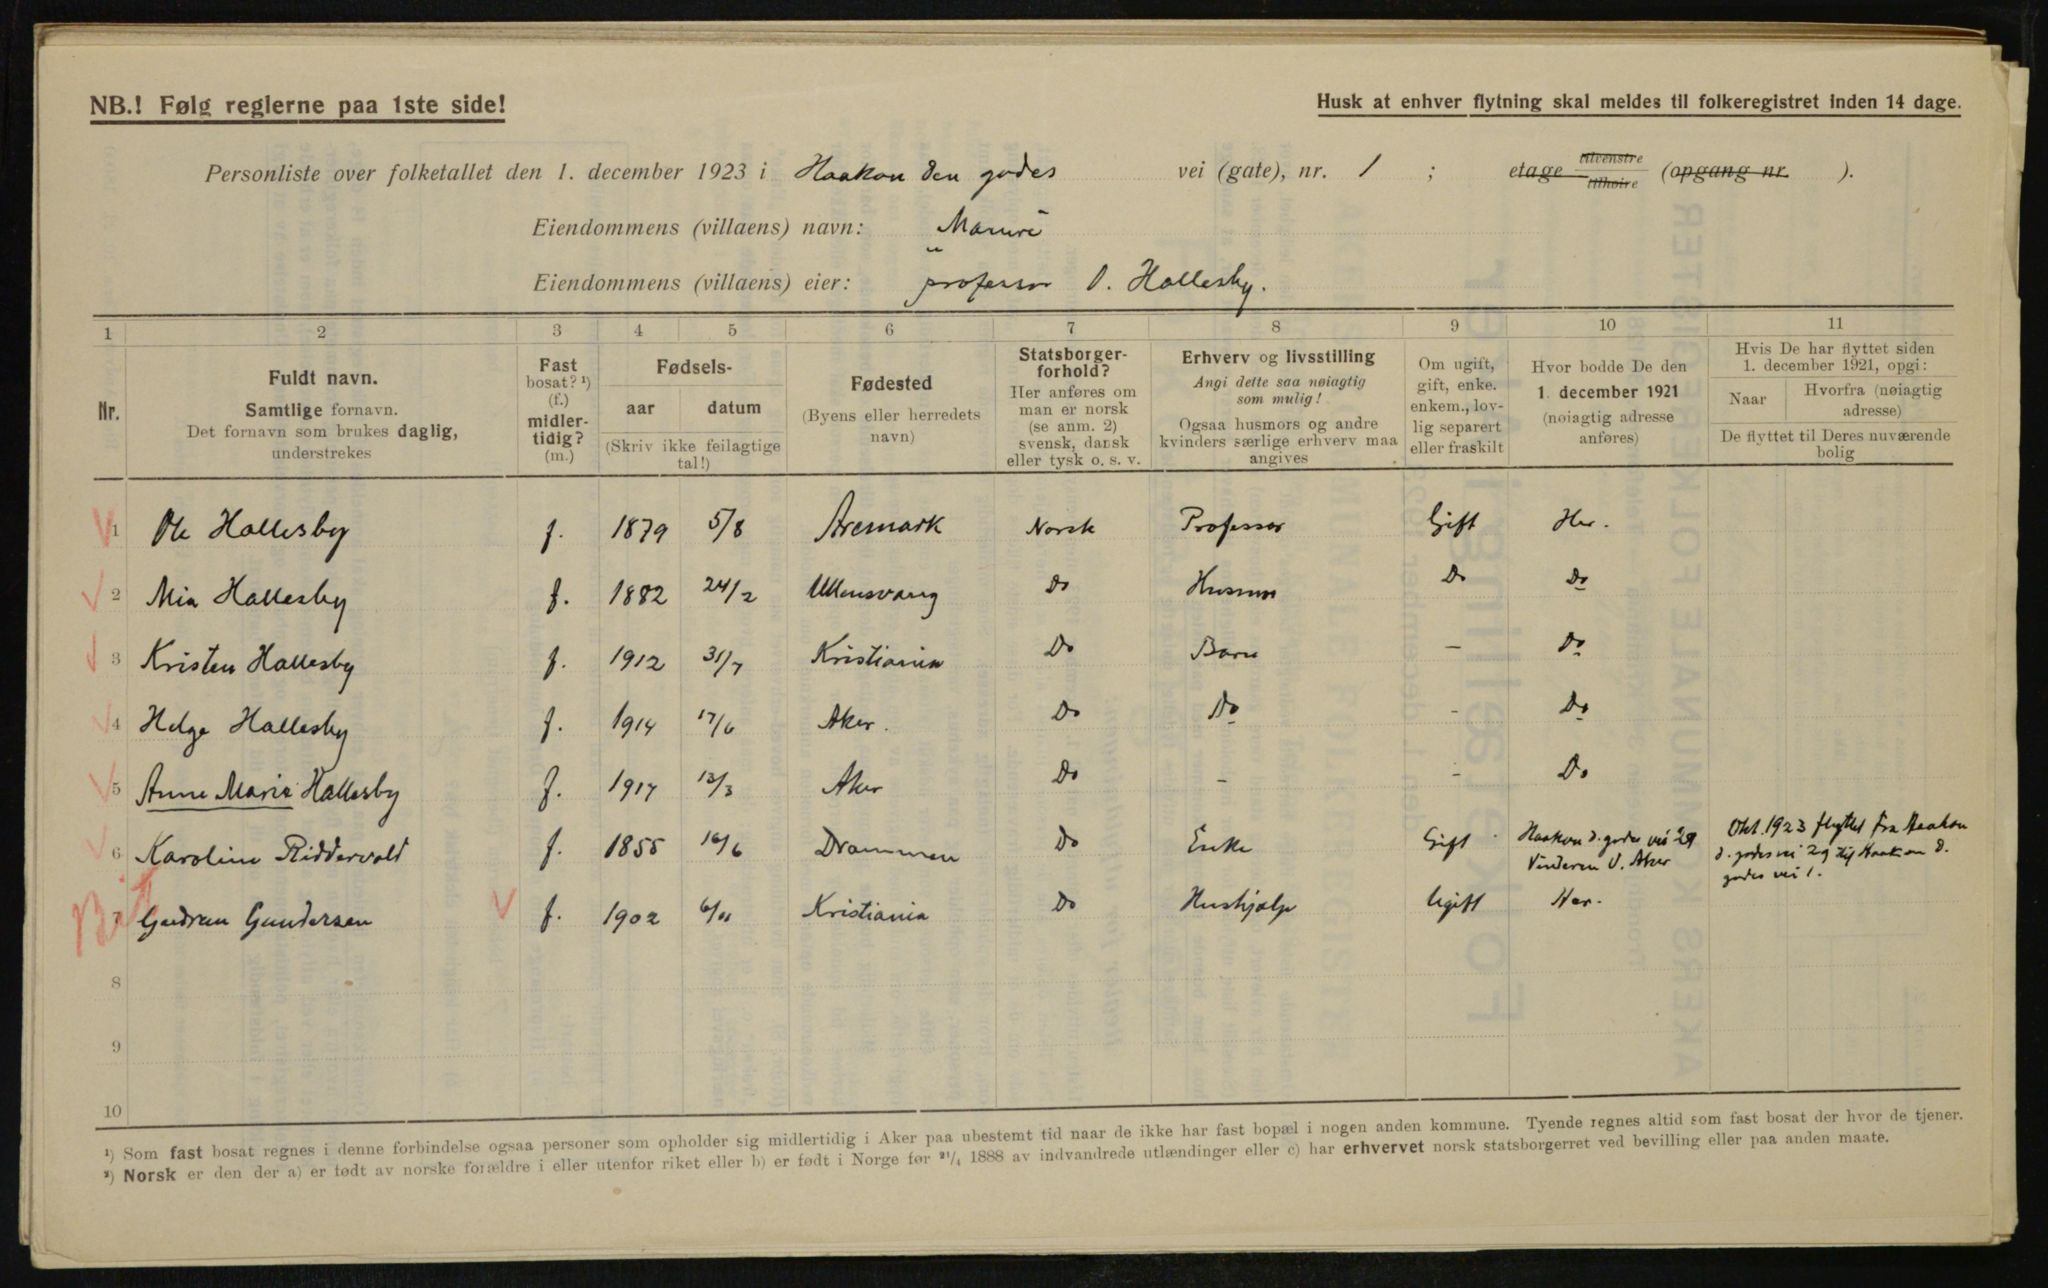 NB.! Følg reglerne paa 1ste side!
Husk at enhver flytning skal meldes til folkeregistret inden 14 dage.
Personliste over folketallet den 1. december 1923 i Haakon den godes vei (gate), nr. 1 ; etage tilvenstre tilhøire (opgang nr. ).
Eiendommens (villaens) navn:
Eiendommens (villaens) eier: professor O. Hallesby.
1 2 3 4 5 6 7 8 9 10 11
Nr.
Fuldt navn.
Samtlige fornavn.
Det fornavn som brukes daglig,
understrekes
Fast
bosat? ¹)
(f.)
midler-
tidig?
(m.)
Fødsels-
aar datum
(Skriv ikke feilagtige
tal!)
Fødested
(Byens eller herredets
navn)
Statsborger-
forhold?
Her anføres om
man er norsk
(se anm. 2)
svensk, dansk
eller tysk o. s. v.
Erhverv og livsstilling
Angi dette saa nøiagtig
som mulig!
Ogsaa husmors og andre
kvinders særlige erhverv maa
angives
Om ugift,
gift, enke.
enkem., lov-
lig separert
eller fraskilt
Hvor bodde De den
1. december 1921
(nøiagtig adresse
anføres)
Hvis De har flyttet siden
1. december 1921, opgi:
Naar
Hvorfra (nøiagtig
adresse)
De flyttet til Deres nuværende
bolig
1 Ole Hallesby f. 1879 5/8 Aremark Norsk Professor Gift Her.
2 Mia Hallesby f. 1882 24/2 Ullensvang Do Husmor Do Do
3 Kristen Hallesby f. 1912 31/7 Kristiania Do Barn – Do
4 Helge Hallesby f. 1914 17/6 Aker. Do Do - Do
5 Anne Marie Hallesby f. 1917 13/3 Aker Do – - Do
6 Karoline Riddervold f. 1855 16/6 Drammen Do Enke Gift Haakon d. godes vei 29
Vinderen V. Aker
Okt. 1923 flyttet fra Haakon
d. godes vei 29 til Haakon d.
godes vei 1.
7 Gudrun Gundersen f. 1902 6/11 Kristiania Do Hushjælp Ugift Her.
8
9
10
¹) Som fast bosat regnes i denne forbindelse ogsaa personer som opholder sig midlertidig i Aker paa ubestemt tid naar de ikke har fast bopæl i nogen anden kommune. Tyende regnes altid som fast bosat der hvor de tjener.
²) Norsk er den der a) er født av norske forældre i eller utenfor riket eller b) er født i Norge før ²¹/₄ 1888 av indvandrede utlændinger eller c) har erhvervet norsk statsborgerret ved bevilling eller paa anden maate.